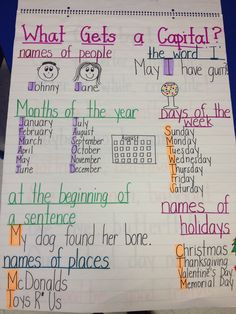 What Gets a Capital?
names of people
Johnny Jane
the word "I"
May I have gum?
Months of the year
January July
February August
March September
April October
May November
June December
August
Days of the
week
Sunday
Monday
Tuesday
Wednesday
Thursday
Friday
Saturday
at the beginning of
a sentence
My dog found her bone.
names of places
McDonalds
Toys R' Us
names of
holidays
Christmas
Thanksgiving
Valentine's Day
Memorial Day